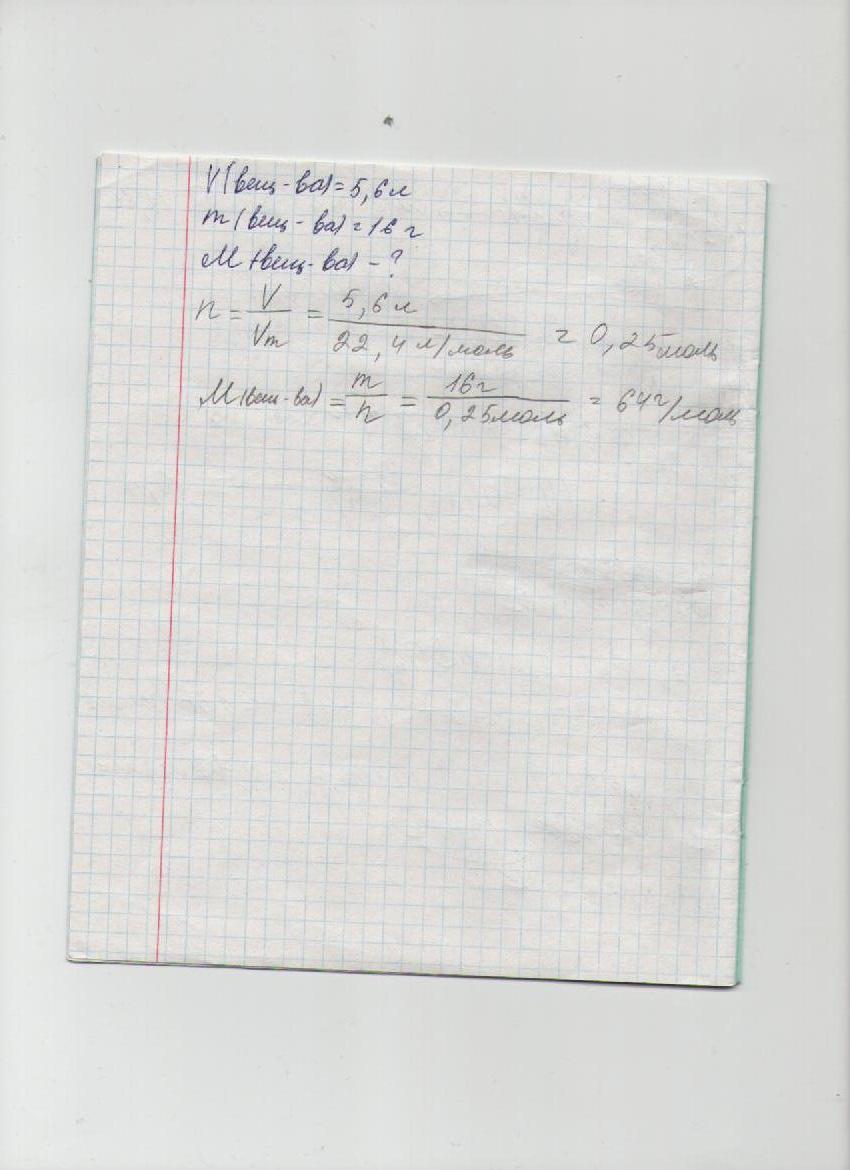 V(вещ-ва)=5,6л
m(вещ-ва)=16г
M(вещ-ва)-?
n = V/Vm = 5,6л/22,4л/моль = 0,25моль
M(вещ-ва) = m/n = 16г/0,25моль = 64г/моль